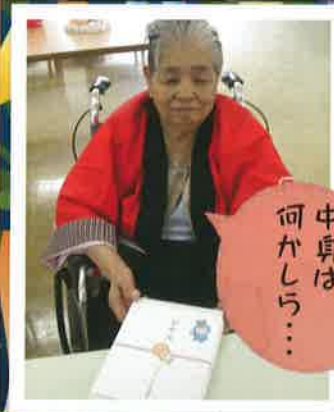 中身は
何かしら…